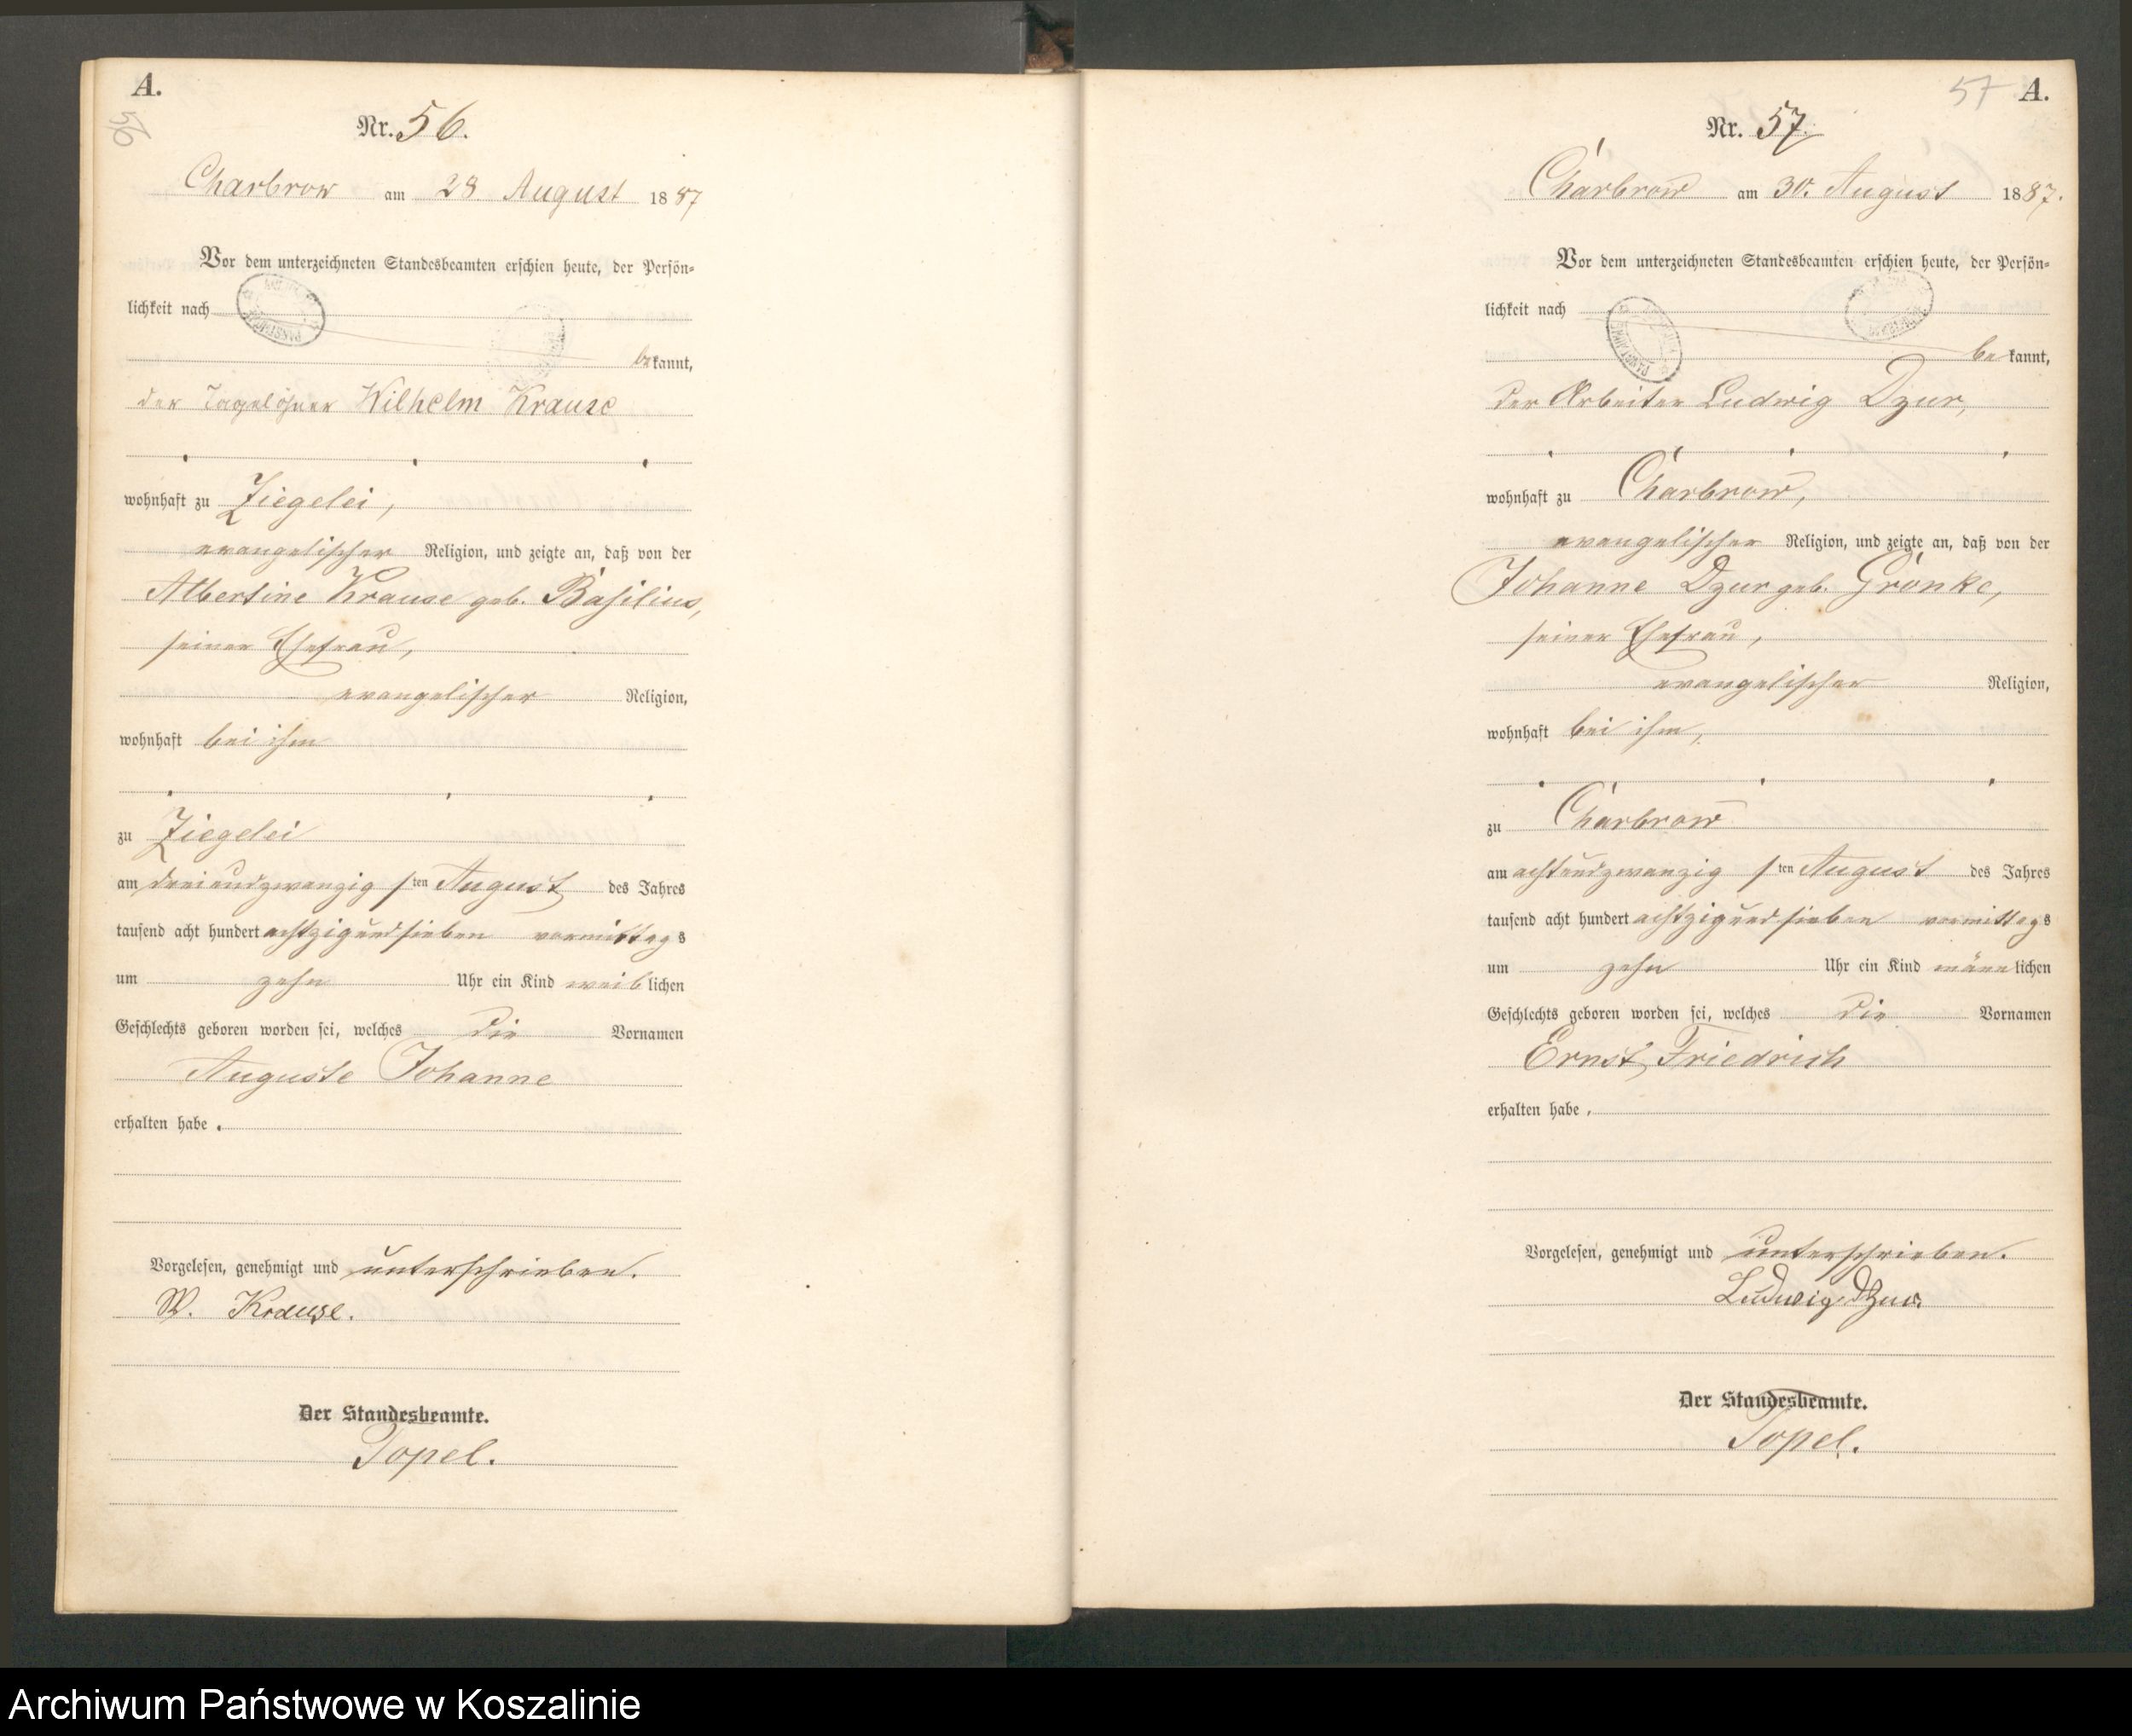 A.
56
Nr. 56.
Charbrow am 28 August 1887
Vor dem unterzeichneten Standesbeamten erschien heute, der Persön-
lichkeit nach
bekannt,
der Tagelöhner Wilhelm Krause
wohnhaft zu Ziegelei,
evangelischer Religion, und zeigte an, daß von der
Albertine Krause geb. Basilius,
seiner Ehefrau,
evangelischer Religion,
wohnhaft bei ihm
zu Ziegelei
am dreiundzwanzigsten August des Jahres
tausend acht hundert achtzigundsieben vormittags
um zehn Uhr ein Kind weiblichen
Geschlechts geboren worden sei, welches die Vornamen
Auguste Johanne
erhalten habe.
Vorgelesen, genehmigt und unterschrieben.
W. Krause.
Der Standesbeamte.
Topel.
57 A.
Nr. 57.
Charbrow am 30. August 1887.
Vor dem unterzeichneten Standesbeamten erschien heute, der Persön-
lichkeit nach
bekannt,
der Arbeiter Ludwig Dzur,
wohnhaft zu Charbrow,
evangelischer Religion, und zeigte an, daß von der
Johanne Dzur geb. Gronke,
seiner Ehefrau,
evangelischer Religion,
wohnhaft bei ihm,
zu Charbrow
am achtundzwanzigsten August des Jahres
tausend acht hundert achtzigundsieben vormittags
um zehn Uhr ein Kind männlichen
Geschlechts geboren worden sei, welches die Vornamen
Ernst Friedrich
erhalten habe.
Vorgelesen, genehmigt und unterschrieben.
Ludwig Dzur
Der Standesbeamte.
Topel.
Archiwum Państwowe w Koszalinie